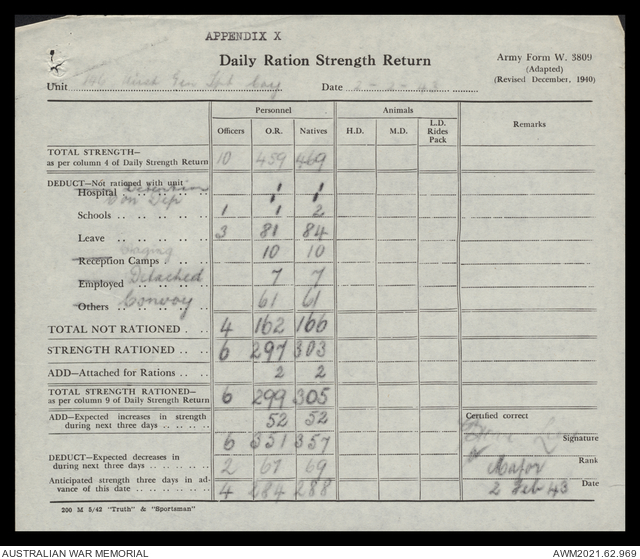 APPENDIX X
Daily Ration Strength Return
Army Form W. 3809
(Adapted)
(Revised December, 1940)
Unit 146 Gen Tpt Coy Date 2-2-43
Personnel Animals Remarks
Officers O.R. Natives H.D. M.D. L.D. Rides Pack
TOTAL STRENGTH—
as per column 4 of Daily Strength Return 10 459 469
DEDUCT—Not rationed with unit
Hospital Detention 1 1
Con Dep 1 1
Schools 1 1 2
Leave 3 81 84
Reception Camps Staging 10 10
Employed Detached 7 7
Others Convoy 61 61
TOTAL NOT RATIONED 4 162 166
STRENGTH RATIONED 6 297 303
ADD—Attached for Rations 2 2
TOTAL STRENGTH RATIONED—
as per column 9 of Daily Strength Return 6 299 305
ADD—Expected increases in strength
during next three days 52 52
6 351 357
DEDUCT—Expected decreases in
during next three days 2 67 69
Anticipated strength three days in ad-
vance of this date 4 284 288
Certified correct
Signature
Major Rank
2 Feb 43 Date
200 M 5/42 "Truth" & "Sportsman"
AUSTRALIAN WAR MEMORIAL
AWM2021.62.969